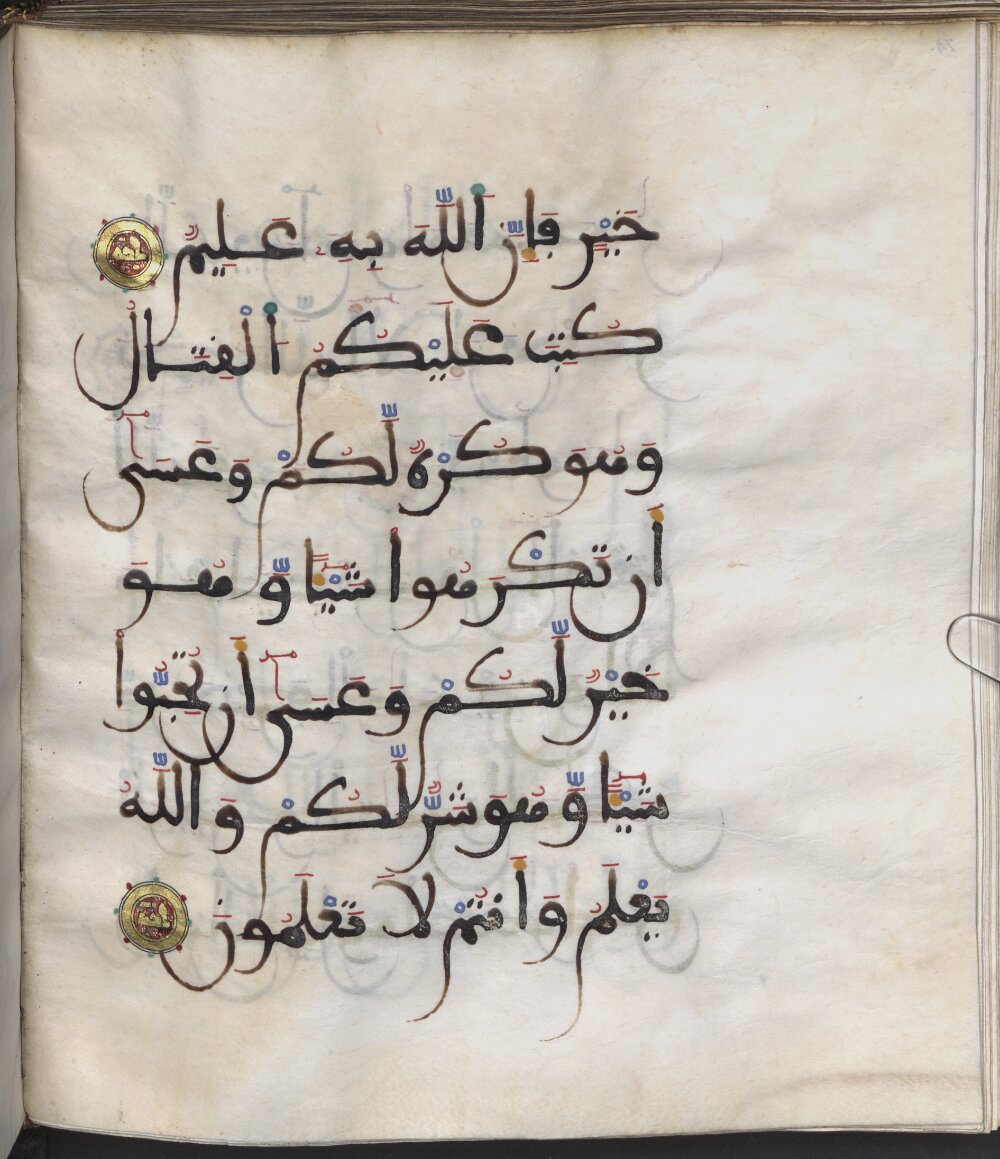 خَيْرٍ فَإِنَّ اَللَّهَ بِهِۦ عَلِيمٌ
كُتِبَ عَلَيْكُمُ اُلْقِتَالُ
وَهُوَ كُرْهٌ لَّكُمْ وَعَسَىٰٓ
أَن تَكْرَهُواْ شَيْـٔاً وَّهُوَ
خَيْرٌ لَّكُمْ وَعَسَىٰٓ أَن تُحِبُّواْ
شَيْـٔاً وَّهُوَ شَرٌّ لَّكُمْ وَاللَّهُ
يَعْلَمُ وَأَنتُمْ لَا تَعْلَمُونَ